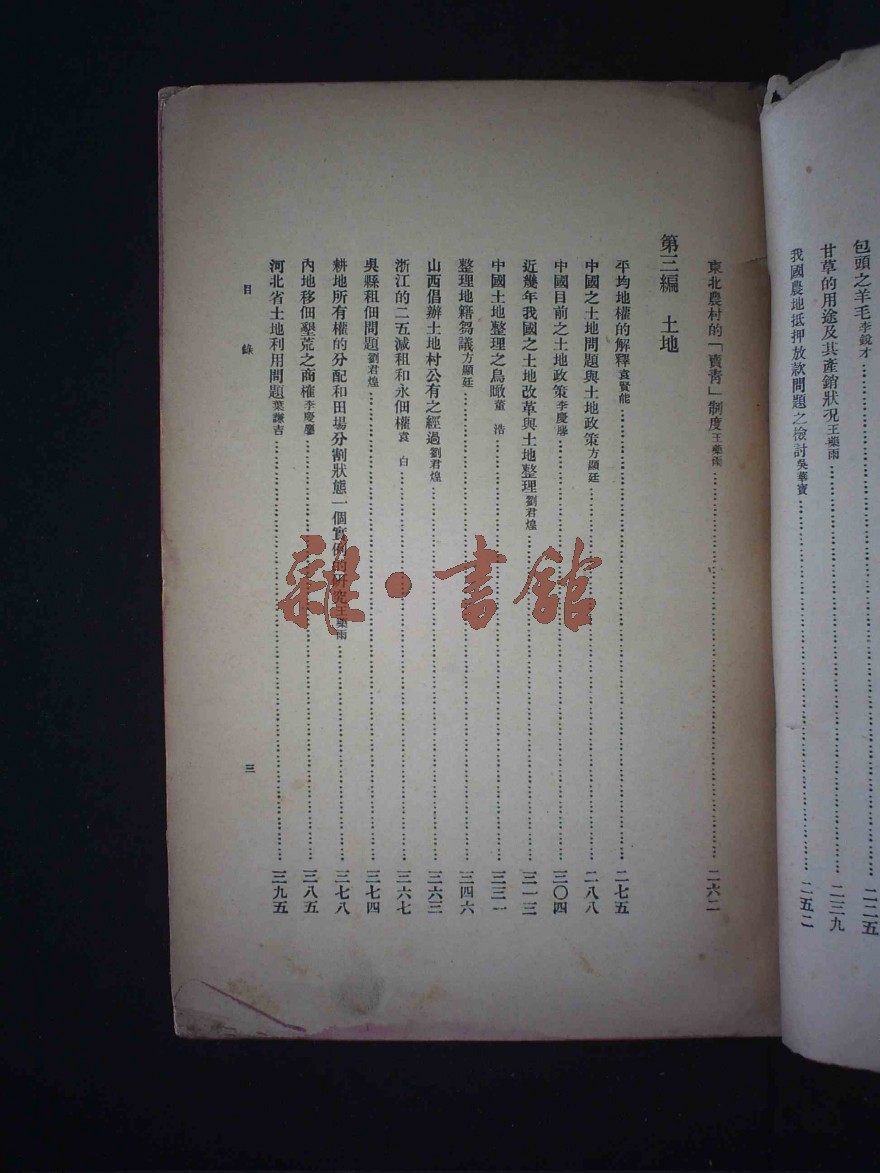 包頭之羊毛李銳才……二二五
甘草的用途及其產銷狀况王藥雨……二三九
我國農地抵押放款問題之檢討吳華寶……二五二
東北農村的「賣青」制度王藥雨……二六二
第三編 土地
平均地權的解釋袁賢能……二七五
中國之土地問題與土地政策方顯廷……二八八
中國目前之土地政策李慶麐……三〇四
近幾年我國之土地改革與土地整理劉君煌……三一三
中國土地整理之鳥瞰董 浩……三三一
整理地籍芻議方顯廷……三四六
山西倡辦土地村公有之經過劉君煌……三六三
浙江的二五減租和永佃權袁 白……三六七
吳縣租佃問題劉君煌……三七四
耕地所有權的分配和田場分割狀態一個實例的研究王藥雨……三七八
內地移佃墾荒之商榷李慶麐……三八五
河北省土地利用問題葉謙吉……三九五
目 錄
三
雜·書館